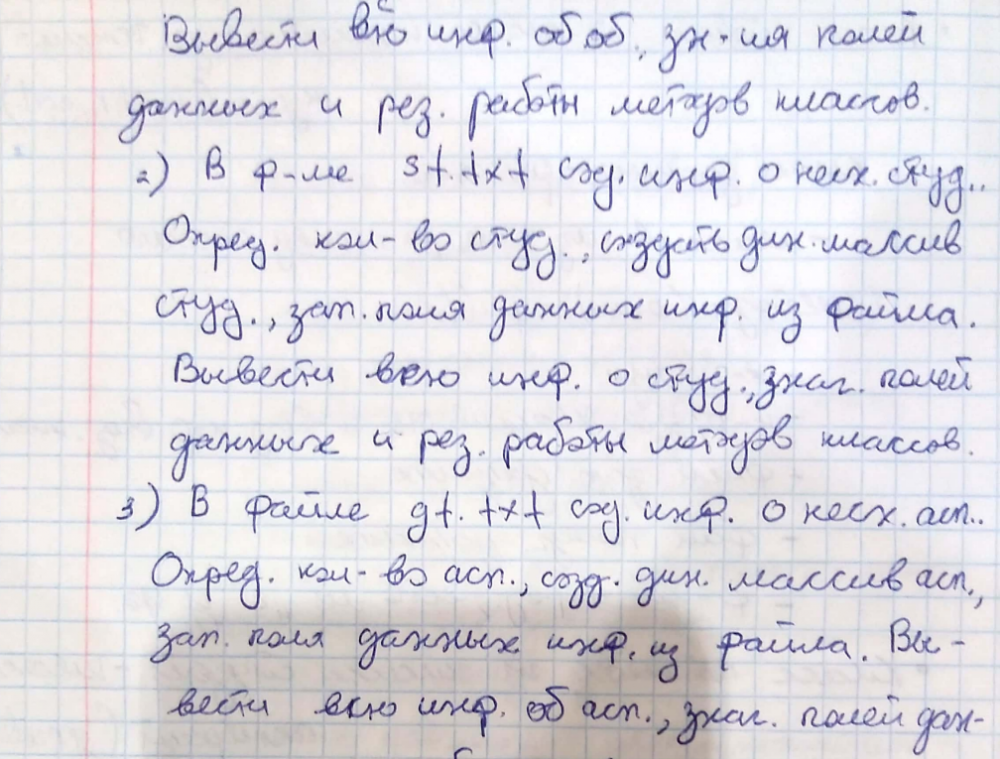 Вывести всю инф. об об., зн-ия полей
данных и рез. работы методов классов.
2) В ф-ле st.txt сод. инф. о неск. студ..
Опред. кол-во студ., создать дин. массив
студ., зап. поля данных инф. из файла.
Вывести всю инф. о студ., знач. полей
данных и рез. работы методов классов.
3) В файле gt.txt сод. инф. о неск. асп..
Опред. кол-во асп., созд. дин. массив асп.,
зап. поля данных инф. из файла. Вы-
вести всю инф. об асп., знач. полей дан-